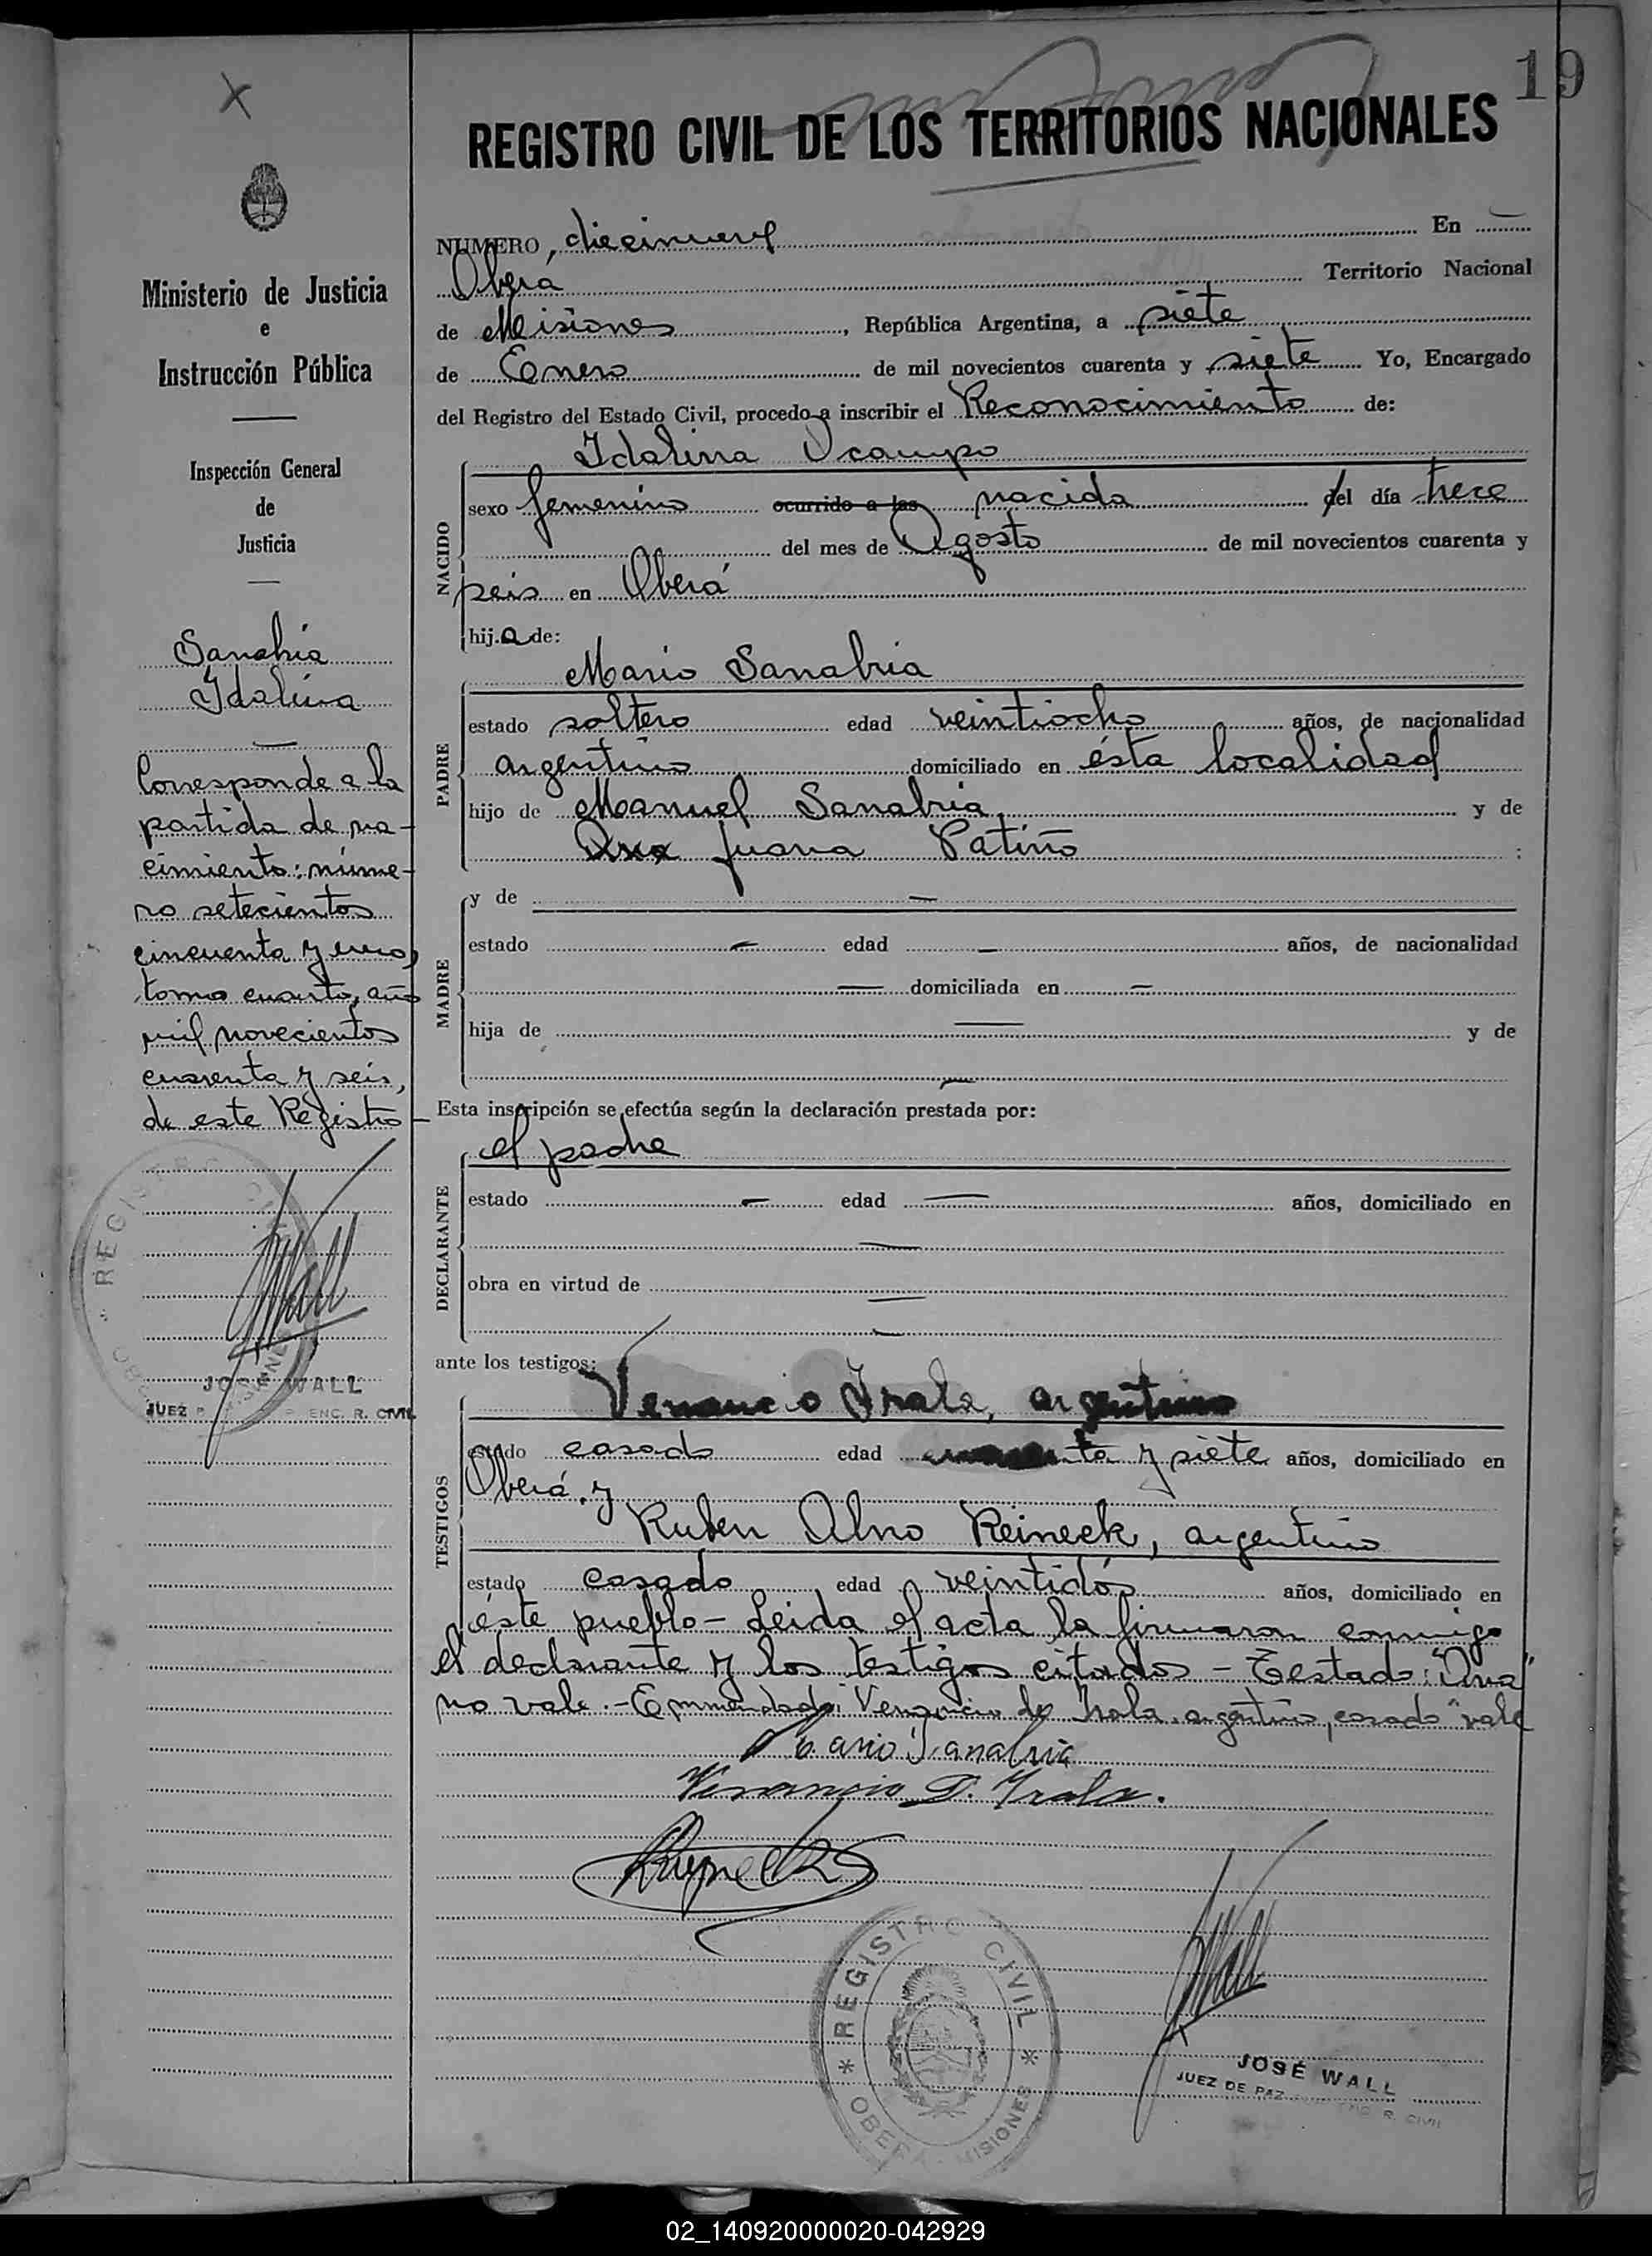 19
REGISTRO CIVIL DE LOS TERRITORIOS NACIONALES
Ministerio de Justicia
e
Instrucción Pública
Inspección General
de
Justicia
Sanabria
Idalina
Corresponde a la
partida de na-
cimiento: núme-
ro setecientos
cincuenta y uno,
tomo cuarto, año
mil novecientos
cuarenta y seis,
de este Registro -
REGISTRO CIVIL
JOSÉ WALL
JUEZ ENC. R. CIVIL
NUMERO diecinueve En
Oberá Territorio Nacional
de Misiones, República Argentina, a siete
de Enero de mil novecientos cuarenta y siete Yo, Encargado
del Registro del Estado Civil, procedo a inscribir el Reconocimiento de:
Idalina Ocampo
NACIDO
sexo femenino ocurrido a las nacida del día trece
del mes de Agosto de mil novecientos cuarenta y
seis en Oberá
hija de:
Mario Sanabria
PADRE
estado soltero edad veintiocho años, de nacionalidad
argentino domiciliado en ésta localidad
hijo de Manuel Sanabria y de
Ana Juana Patiño :
MADRE
y de —
estado — edad — años, de nacionalidad
— domiciliada en —
hija de — y de
—
Esta inscripción se efectúa según la declaración prestada por:
el padre
DECLARANTE
estado — edad — años, domiciliado en
—
obra en virtud de —
—
ante los testigos:
Venancio Irala, argentino
TESTIGOS
estado casado edad y siete años, domiciliado en
Oberá y
Ruben Alno Reineck, argentino
estado casado edad veintidós años, domiciliado en
éste pueblo - Leida el acta la firmaron conmigo
el declarante y los testigos citados - Testado: "Ana"
no vale. - Emmendado: Venancio de Irala, argentino, casado "vale
Mario Sanabria
Venancio D. Irala.
REGISTRO CIVIL
OBERÁ - MISIONES
JOSÉ WALL
JUEZ DE PAZ ENC. R. CIVIL
02_140920000020-042929